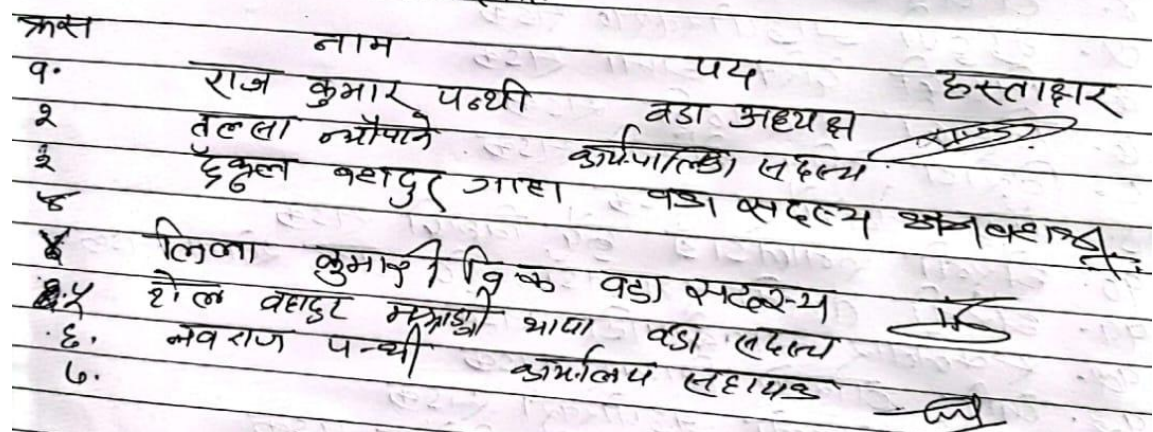 क्रस नाम पद हस्ताक्षर
१. राज कुमार पन्थी वडा अध्यक्ष
२ न्यौपाने कार्यपालिका सदस्य
३ बहादुर वडा सदस्य
४ कुमारी वि क वडा सदस्य
५ बहादुर थापा वडा सदस्य
६. नवराज पन्थी कार्यालय सहायक
७.